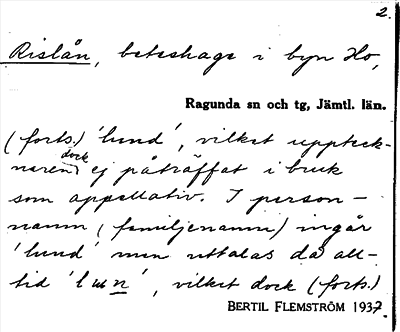 2.
Rislån, beteshage i byn Ho,
Ragunda sn och tg, Jämtl. län.
(forts.) 'lund', vilket uppteck-
naren dock ej påträffat i bruk
som appellativ. I person-
namn (familjenamn) ingår
'lund' men uttalas då all-
tid 'lun', vilket dock (forts.)
BERTIL FLEMSTRÖM 1937.